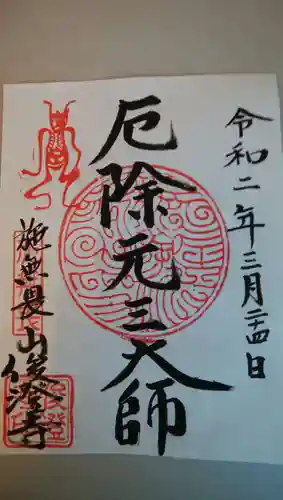 令和二年三月二十四日
厄除元三大師
施無畏山俊澄寺